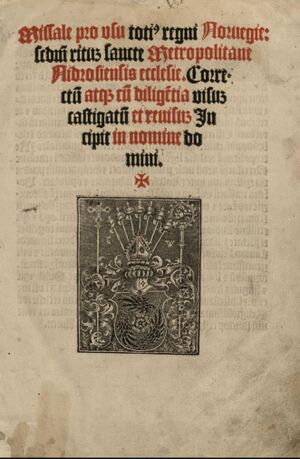 Missale pro vsu totiꝰ regni Noruegie:
ſedm̄ ritū ſancte Metropolitane
Nidroſienſis eccleſie. Corre-
ctū atqꝫ cū diligētia viſuꝫ
caſtigatū et reuiſuꝫ In
cipit in nomine do
mini.